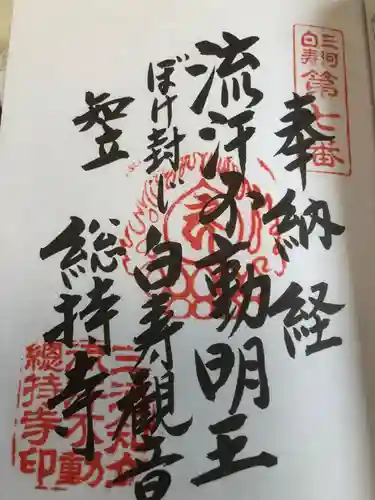 三河
白寿
第七番
奉納経
流汗不動明王
ぼけ封じ白寿観音
知立
総持寺
總持寺印